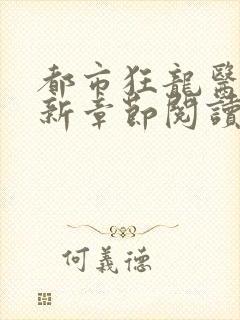 都市狂龍醫
新章節閱讀
何義德